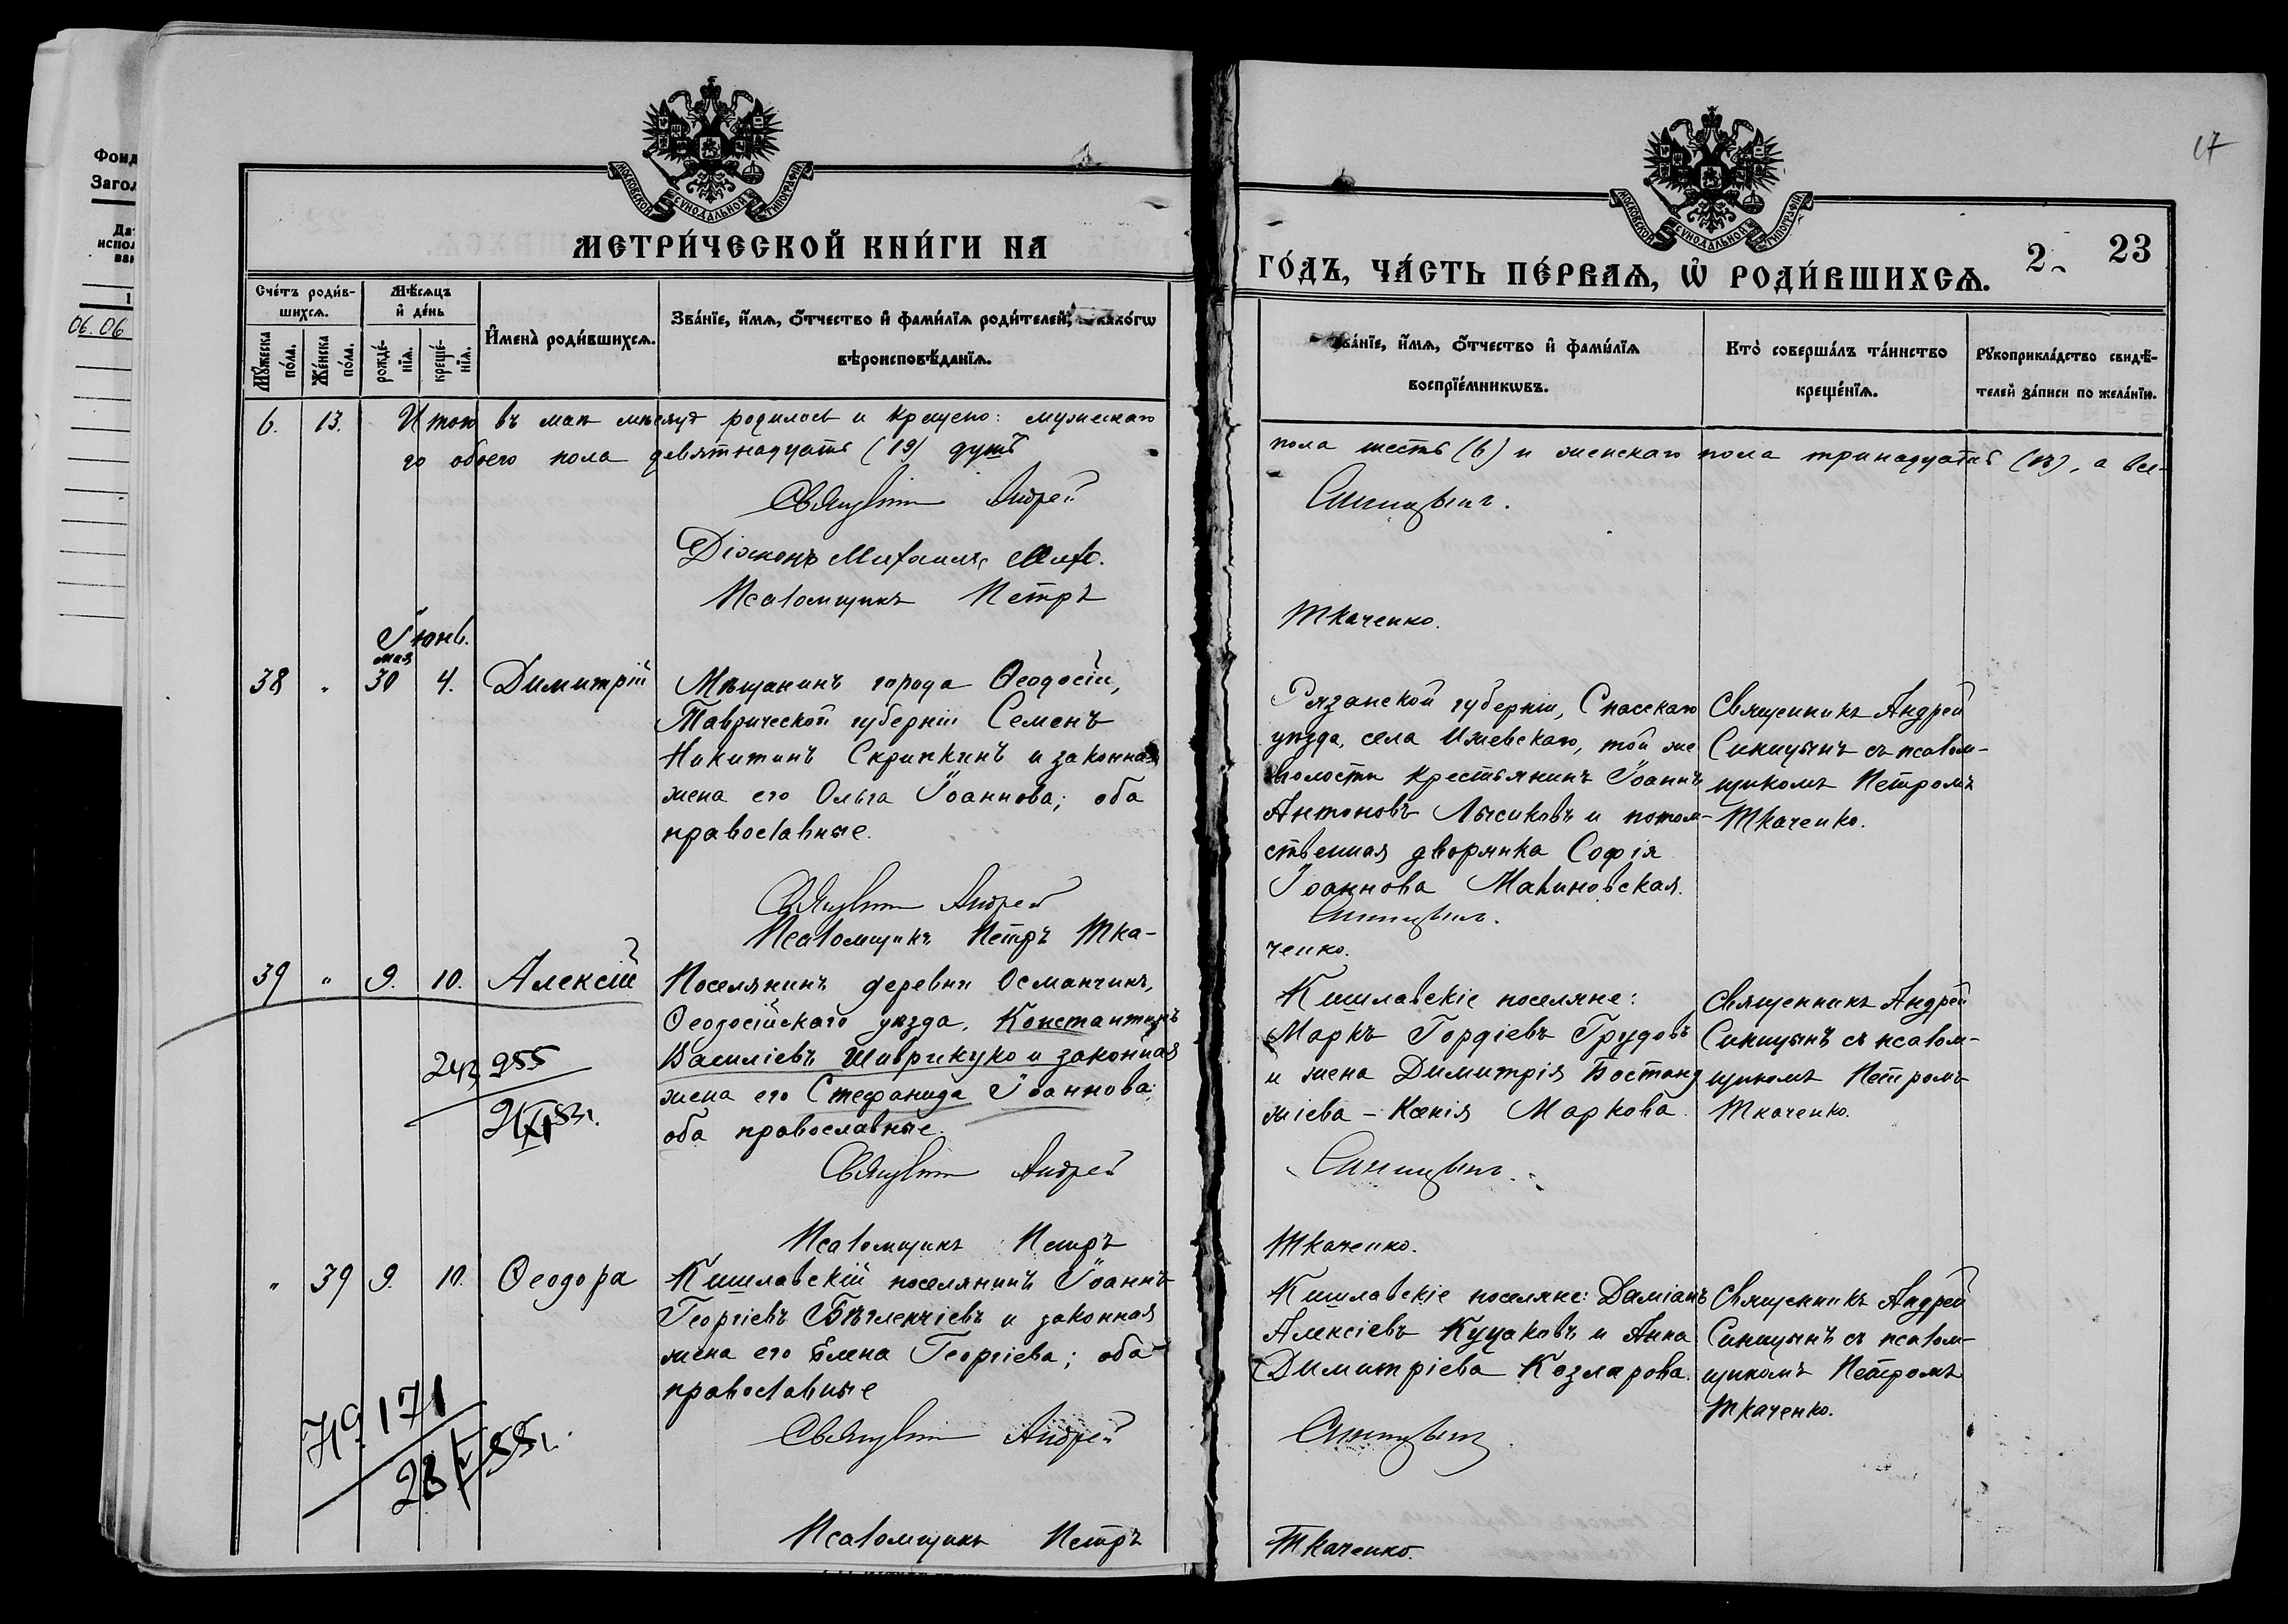 Фонд
Загол
Дат
испол
ван
1
06.06
МОСКОВСКОЙ СУНОДАЛЬНОЙ ТИПОГРАФІИ
МЕТРИ́ЧЕСКОЙ КНИ́ГИ НА
Сче́тъ роди́в-
шихсѧ.
Мѣ́сѧцъ
и҆ де́нь
Мꙋ́жеска по́ла.
Же́нска по́ла.
рожде́-
нїѧ.
креще́-
нїѧ.
И҆мена̀ роди́вшихсѧ.
Зва́нїе, и҆́мѧ, ѻ҆́тчество и҆ фами́лїѧ роди́телей, како́гѡ
вѣроисповѣ́данїѧ.
6. 13. Итого въ маѣ мѣсяцѣ родилось и крещено: мужескаго
го обоего пола девятнадцать (19) душъ
Священникъ Андрей
Діаконъ Михаилъ
Псаломщикъ Петръ
Іюнь.
мая
38 " 30 4. Димитрій Мѣщанинъ города Ѳеодосіи,
Таврической губерніи Семенъ
Никитинъ Скрипкинъ и законная
жена его Ольга Іоаннова; оба
православные.
Священникъ Андрей
Псаломщикъ Петръ Тка-
39 " 9. 10. Алексій Поселянинъ деревни Османчикъ,
Ѳеодосійскаго уѣзда, Константинъ
Василіевъ Шаврикуко и законная
жена его Стефанида Іоаннова;
оба православные.
955
Священникъ Андрей
Псаломщикъ Петръ
" 39 9. 10. Ѳеодора Кишлавскій поселянинъ Іоаннъ
Георгіевъ Бѣгленчіевъ и законная
жена его Елена Георгіева; оба
православные
171
Священникъ Андрей
Псаломщикъ Петръ
17
МОСКОВСКОЙ СУНОДАЛЬНОЙ ТИПОГРАФІИ
ГО́ДЪ, ЧА́СТЬ ПЕ́РВАѦ, Ѡ҆ РОДИ́ВШИХСѦ.
2 23
Зва́нїе, и҆́мѧ, ѻ҆́тчество и҆ фами́лїѧ
воспрїе́мникѡвъ.
Кто̀ соверша́лъ та́инство
креще́нїѧ.
Рꙋкоприкла́дство свидѣ́-
телей за́писи по жела́нїю.
пола шесть (6) и женскаго пола тринадцать (13), а все-
Синицынъ.
Ткаченко.
Рязанской губерніи, Спасскаго
уѣзда, села Ижевскаго, той же
волости крестьянинъ Іоаннъ
Антоновъ Лысиковъ и потом-
ственная дворянка Софія
Іоаннова Малиновская.
Священникъ Андрей
Синицынъ съ псалом-
щикомъ Петромъ
Ткаченко.
Синицынъ.
ченко.
Кишлавскіе поселяне:
Маркъ Гордіевъ Грудовъ
и жена Димитрія Бостанд
жіева - Ксенія Маркова.
Священникъ Андрей
Синицынъ съ псалом-
щикомъ Петромъ
Ткаченко.
Синицынъ.
Ткаченко.
Кишлавскіе поселяне: Даміанъ
Алексіевъ Куцаковъ и Анна
Димитріева Козлярова.
Священникъ Андрей
Синицынъ съ псалом-
щикомъ Петромъ
Ткаченко.
Синицынъ
Ткаченко.